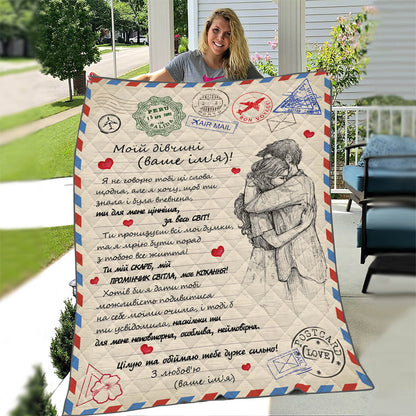 PERU
AIR MAIL
BON VOYAGE
Моїй дівчині
(ваше ім'я)!
Я не говорю тобі ці слова
щодня, але я хочу, щоб ти
знала і була впевнена,
ти для мене цінніша,
за весь СВІТ!
Ти пронизуєш всі мої думки,
та я мрію бути поряд
з тобою все життя!
Ти мій СКАРБ, мій
ПРОМІНЧИК СВІТЛА, моє КОХАННЯ!
Хотів би я дати тобі
можливість подивитися
на себе моїми очима, і тоді б
ти усвідомила, наскільки ти
для мене неповторна, особлива, неймовірна.
Цілую та обіймаю тебе дуже сильно!
З любов'ю
(ваше ім'я)
POSTCARD
LOVE